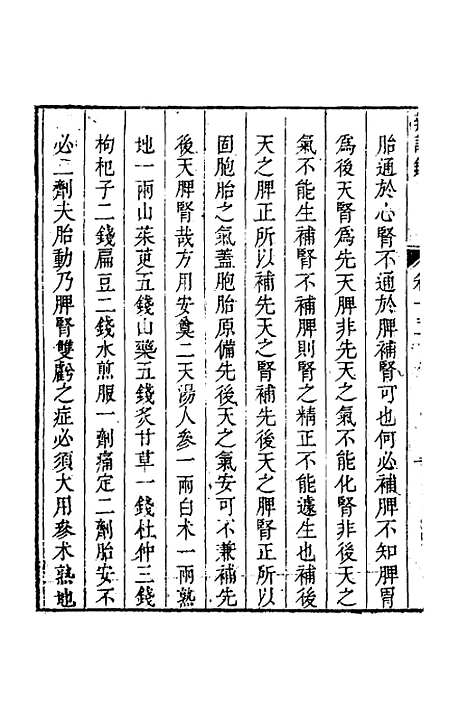 胎通於心腎不通於脾補腎可也何必補脾不知脾胃
為後天腎為先天脾非先天之氣不能化腎非後天之
氣不能生補腎不補脾則腎之精正不能遽生也補後
天之脾正所以補先天之腎補先後天之脾腎正所以
固胞胎之氣蓋胞胎原備先後天之氣安可不兼補先
後天脾腎哉方用安奠二天湯人參一兩白术一兩熟
地一兩山茱萸五錢山藥五錢炙甘草一錢杜仲三錢
枸杞子二錢扁豆二錢水煎服一劑痛定二劑胎安不
必三劑夫胎動乃脾腎雙虧之症必須大用參术熟地